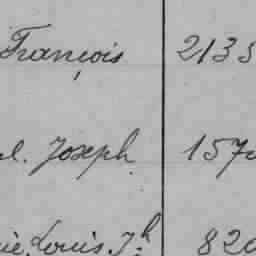 François 2135
el. Joseph 157
ie. Louis. Jh 820